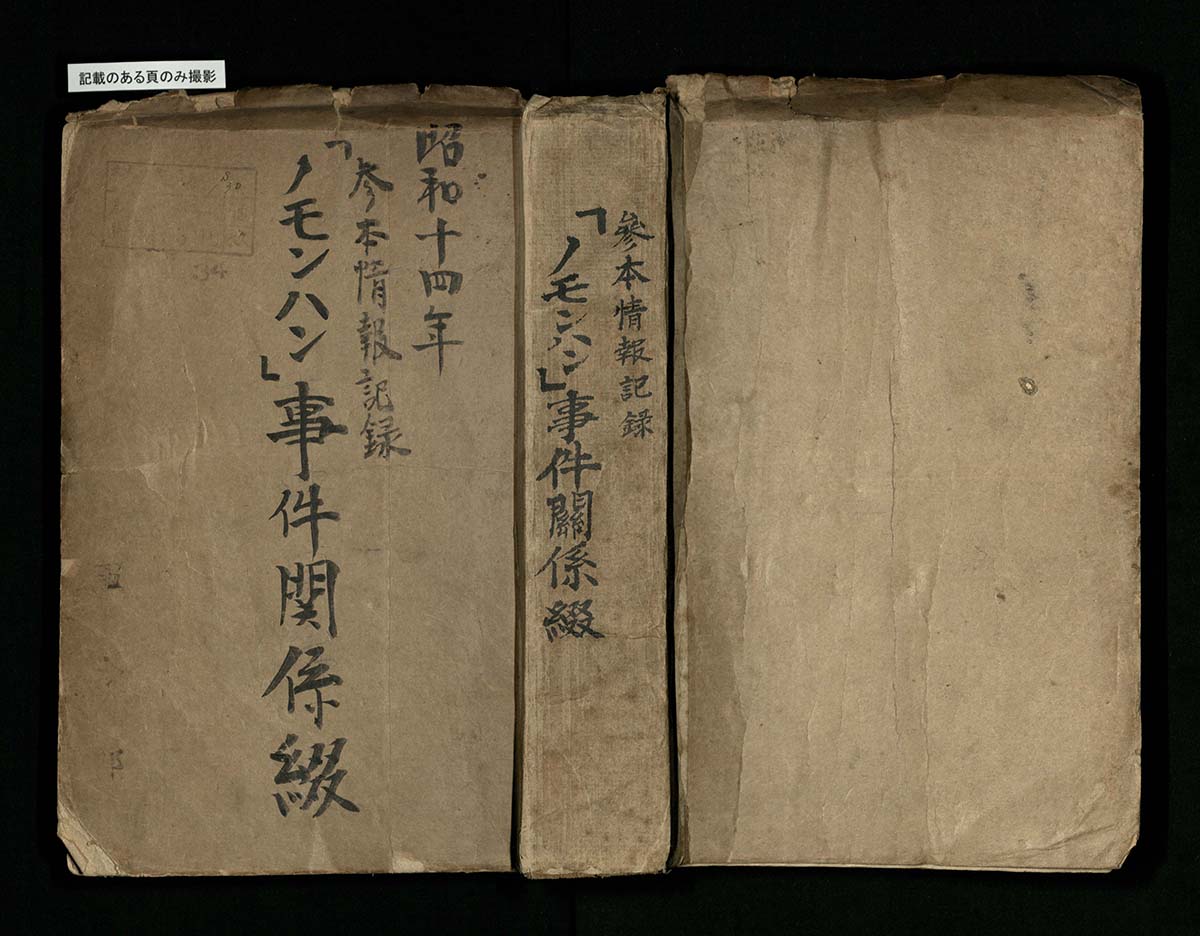 記載のある頁のみ撮影
昭和十四年
参本情報記録
「ノモンハン」事件関係綴
參本情報記録
「ノモンハン」事件關係綴
34